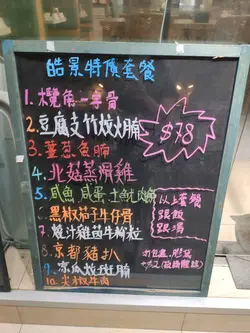 皓景特價套餐
1. 欖角一字骨
2. 豆腐支竹炆火腩
3. 薑葱魚腩
4. 北菇蒸滑雞
5. 咸魚 咸蛋 土魷 肉餅
6. 黑椒茄子牛仔骨
7. 燒汁雞茵牛柳粒
8. 京都豬扒
9. 涼瓜炆斑腩
10. 尖椒牛肉
$78
以上套餐
跟飯
跟湯